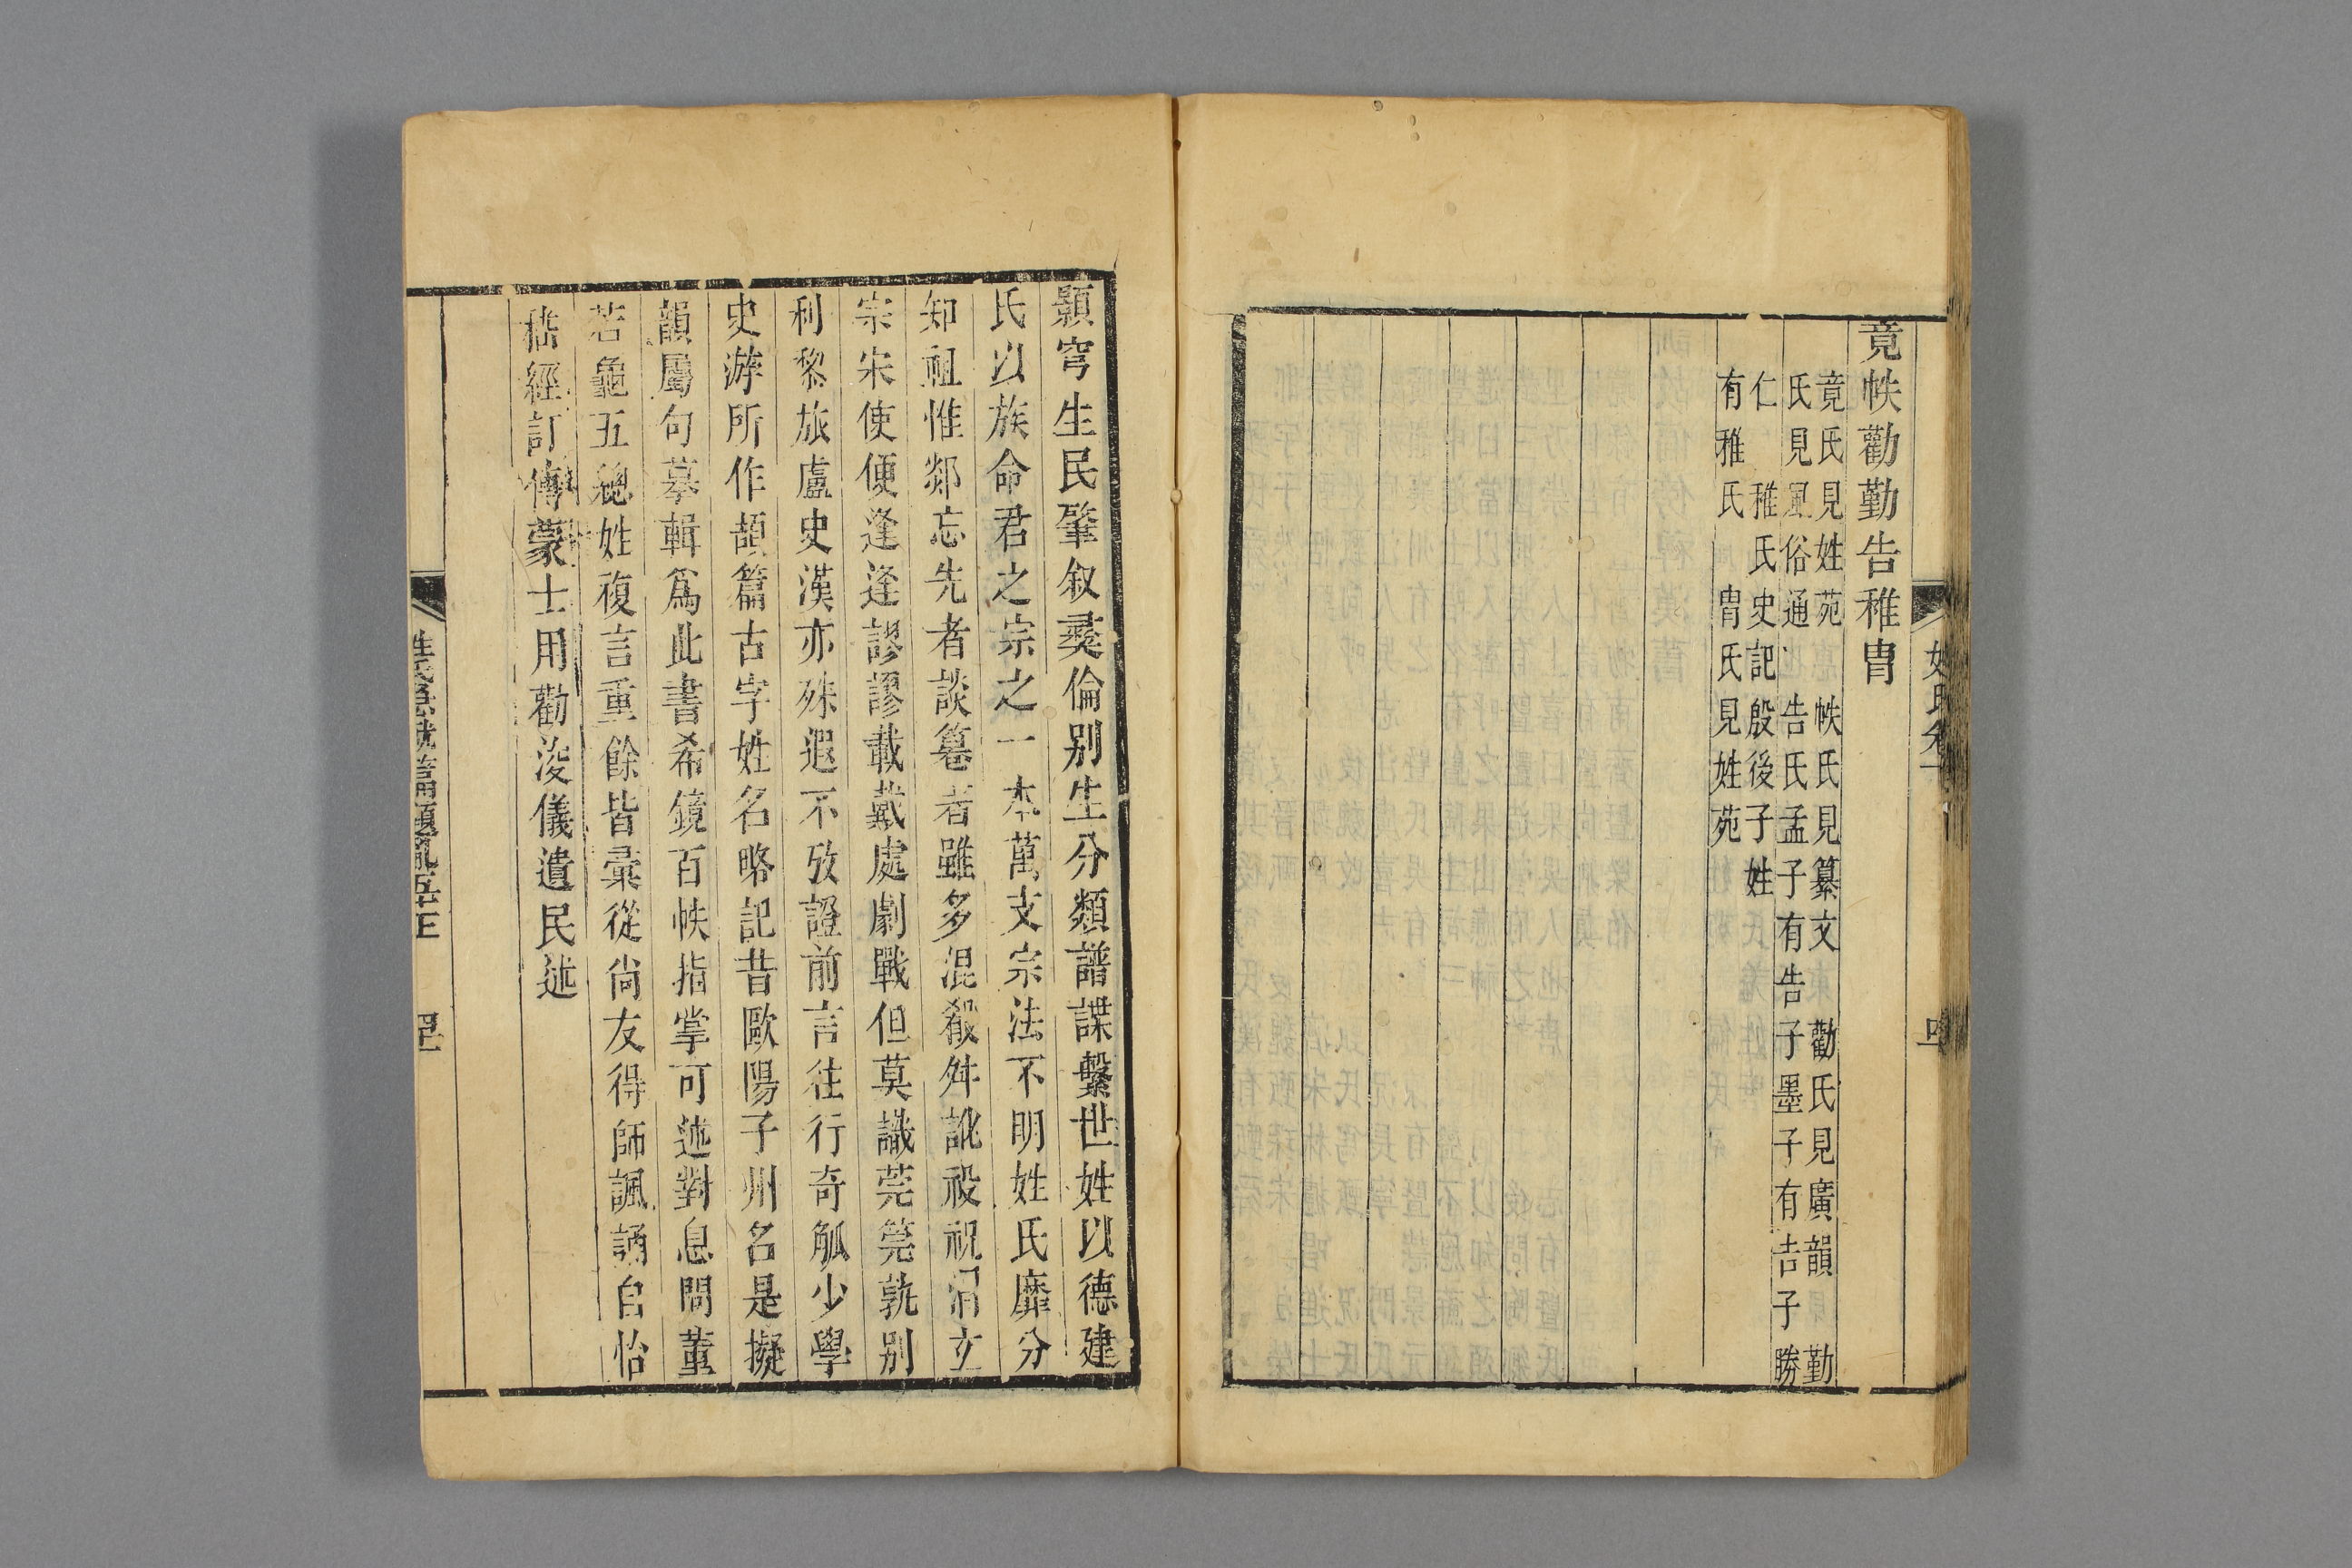 竟帙勸勤告稚冑
竟氏見姓苑　帙氏見纂文　勸氏見廣韻　勤
氏見風俗通　告氏孟子有告子墨子有告子勝
仁　稚氏史記殷後子姓
有稚氏　冑氏見姓苑
顥穹生民肇叙彞倫别生分類譜諜繫世姓以德建
氏以族命君之宗之一本萬支宗法不明姓氏靡分
知祖惟郯忘先者談篹者雖多混殽舛訛祋祝涓立
宗宋使便逢逄謬謬載戴處劇戰但莫識莞筦孰别
利黎旅盧史漢亦殊遐不攷證前言往行奇觚少學
史游所作頡篇古字姓名略記昔歐陽子州名是擬
韻屬句摹輯爲此書希鏡百帙指掌可述對息問董
若龜五總姓複言重餘皆彙從尚友得師諷誦自怡
嵇經訂傳蒙士用勸浚儀遺民述